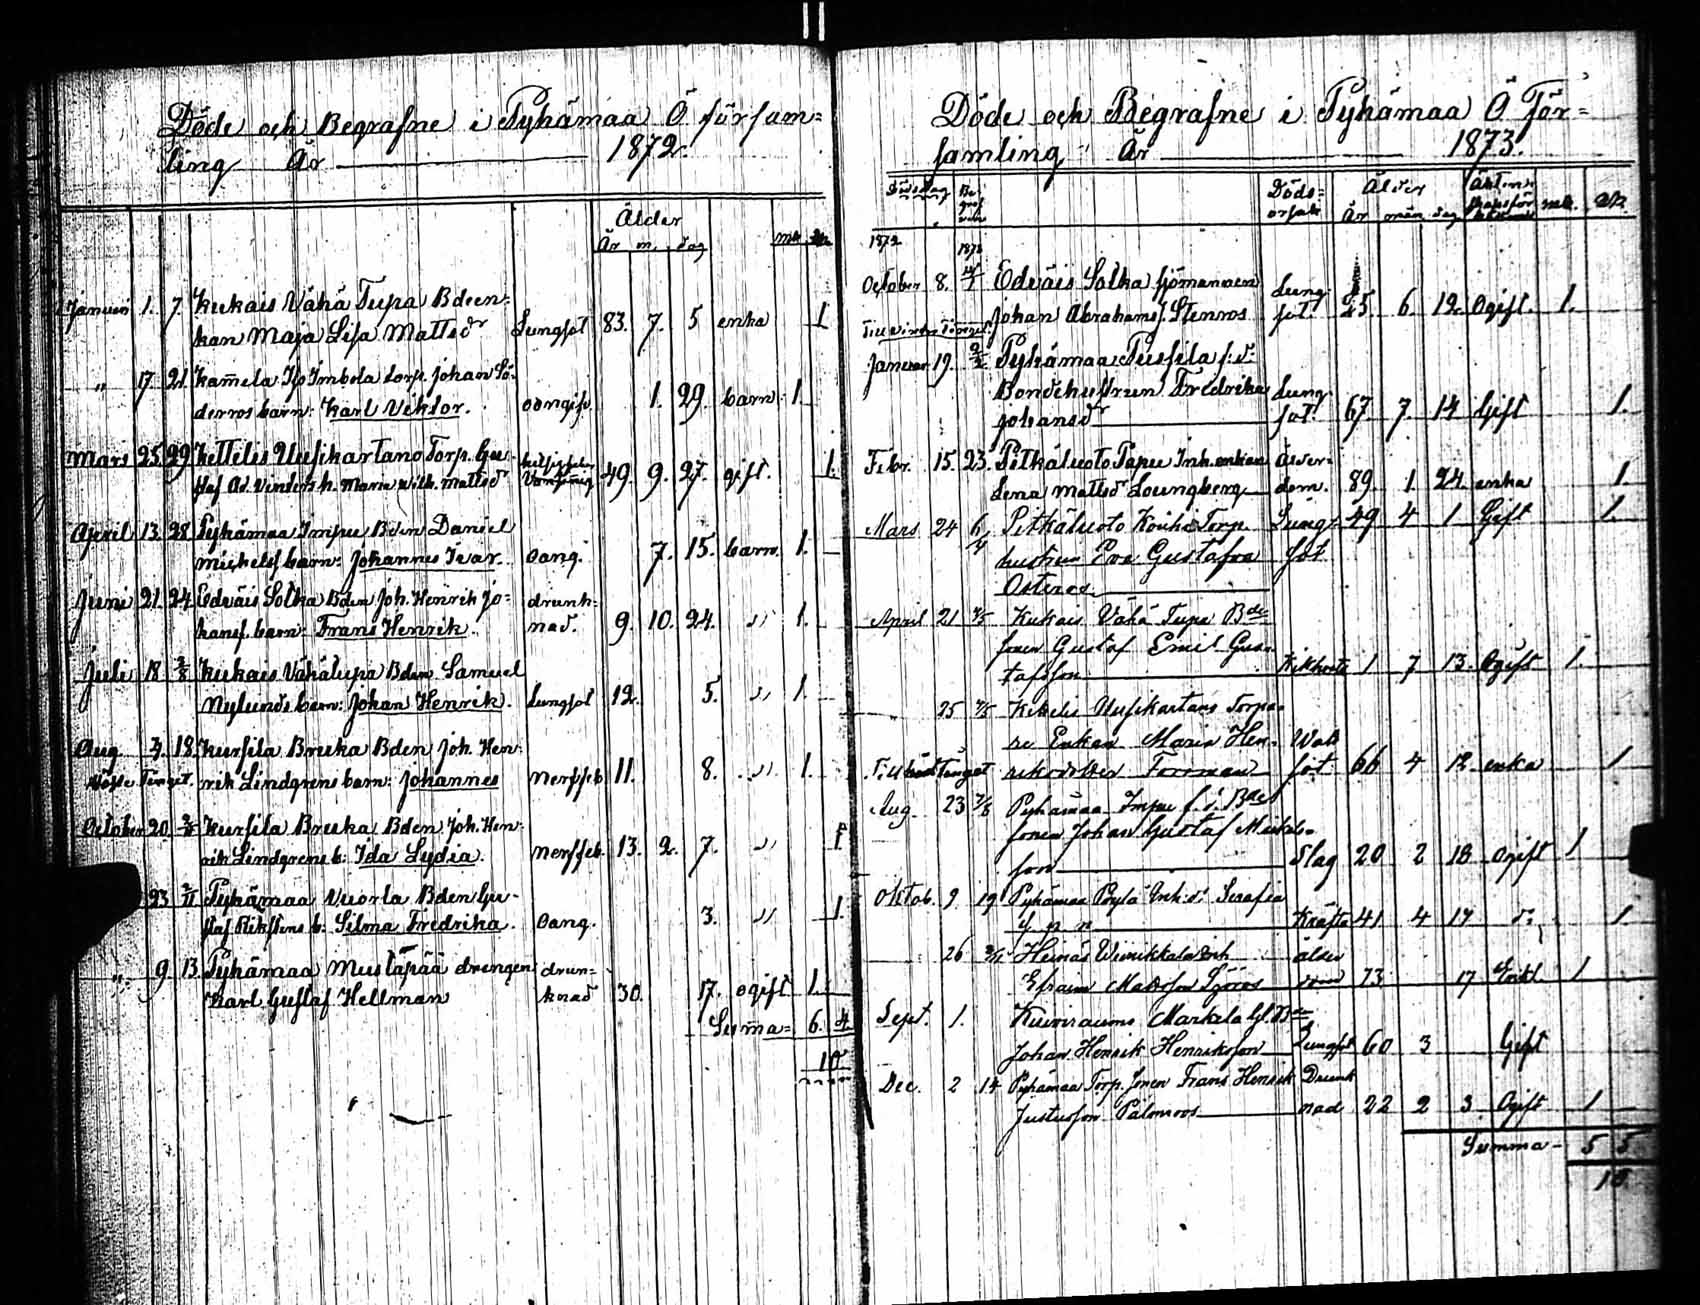 Döde och Begrafne i Pyhämaa Ö församling År 1872.
Ålder
År m. dag
Januari 1. 7. Kukais Vähä Tupa Bdeen-
kan Maja Lisa Mattsdr Lungsot 83. 7. 5 enka 1
" 17 21 Kamela Iso Imbola torp. Johan Sö-
derros barn: Karl Viktor. 1. 29. barn 1.
Mars 25 29 Kettelis Uusikartano Torp. Gu-
staf Ad. h. Maria Wilh. Mattsdr 49. 9. 27. gift. 1.
April 13. 28 Pyhämaa Impu Bden Daniel
Michelss. barn: Johannes Ivar. oang. 7. 15. barn. 1.
Juni 21. 24 Edväis Solka Bden Joh. Henrik Jo-
hanss. barn: Frans Henrik. drunk-
nad. 9. 10. 24. " 1.
Juli 18 Kukais Vähätupa Bden Samuel
Nylunds barn: Johan Henrik. Lungsot 12. 5. " 1.
Aug. 18. Kursila Bruka Bden Joh. Hen-
rik Lindgrens barn: Johannes 11. 8. " 1.
October 20. Kursila Bruka Bden Joh. Hen-
rik Lindgrens b: Ida Lydia. 13. 2. 7. " 1
23 Pyhämaa Vuorla Bden Gu-
staf b: Silma Fredrika. oang. 3. " 1.
" 9. 13. Pyhämaa Mustapää drengen
Karl Gustaf Hellman drun-
knad 30. 17. ogift 1.
Summa= 6. 4
10
Döde och Begrafne i Pyhämaa Ö För=
samling År 1873.
Dödsdag Döds=
orsak Ålder
År mån dag mk. qk.
1872 1873
October 8. Edväis Solka sjömannen
Johan Abrahams. Stenros Lung-
sot 25 6 12. Ogift. 1.
Januari 19. Pyhämaa f.d.
Bondehustrun Fredrika
Johansdr Lung-
sot 67 7 14 Gift 1.
Febr. 15. 23. Pitkäluoto Papu Inh.enkan
Lena Mattsdr Loungberg Ålder-
dom. 89. 1 24 enka 1.
Mars 24 6/4 Pitkäluoto Torp. Lung- 49 4 1 Gift 1.
hustrun Eva Gustafva sot
Osteros
April 21 Kukais Vähä Tupa Bde
sonen Gustaf Emil Gus-
tafsson Kikhosta 1 7 13. Ogift 1.
25 Uusikartano Torpa-
re Enkan Maria Hen-
riksdotter Forsman Vatt
sot 66 4 12 enka 1
Aug. 23 Pyhämaa Impu f.d. Bde
sonen Johan Gustaf
son Slag 20 2 18 Ogift 1
Oktob. 9 19 Pyhämaa Inh. d: Serafia
Kräfta 41 4 17 d: 1.
26 Heinäs
Efraim Mattsson Sjöros ålder
dom 73 17 Enkl. 1
Sept. 1. Markula
Johan Henrik Henriksson Lungsot 60 3 Gift
Dec. 2 14 Pyhämaa Torp. sonen Frans Henrik Drunk
Justusson Palmroos nad 22 2 3. Ogift 1
Summa- 5 5
10